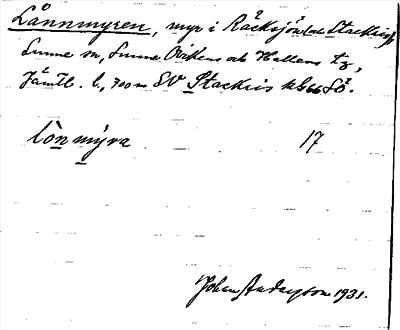 Lånnmyren, myr i Räcksjön (el. Stackris),
Sunne sn, Sunne Ovikens och Hallens tg,
Jämtl. l., 700 m SV Stackris
lònmýra 17
Johan Anderson 1931.